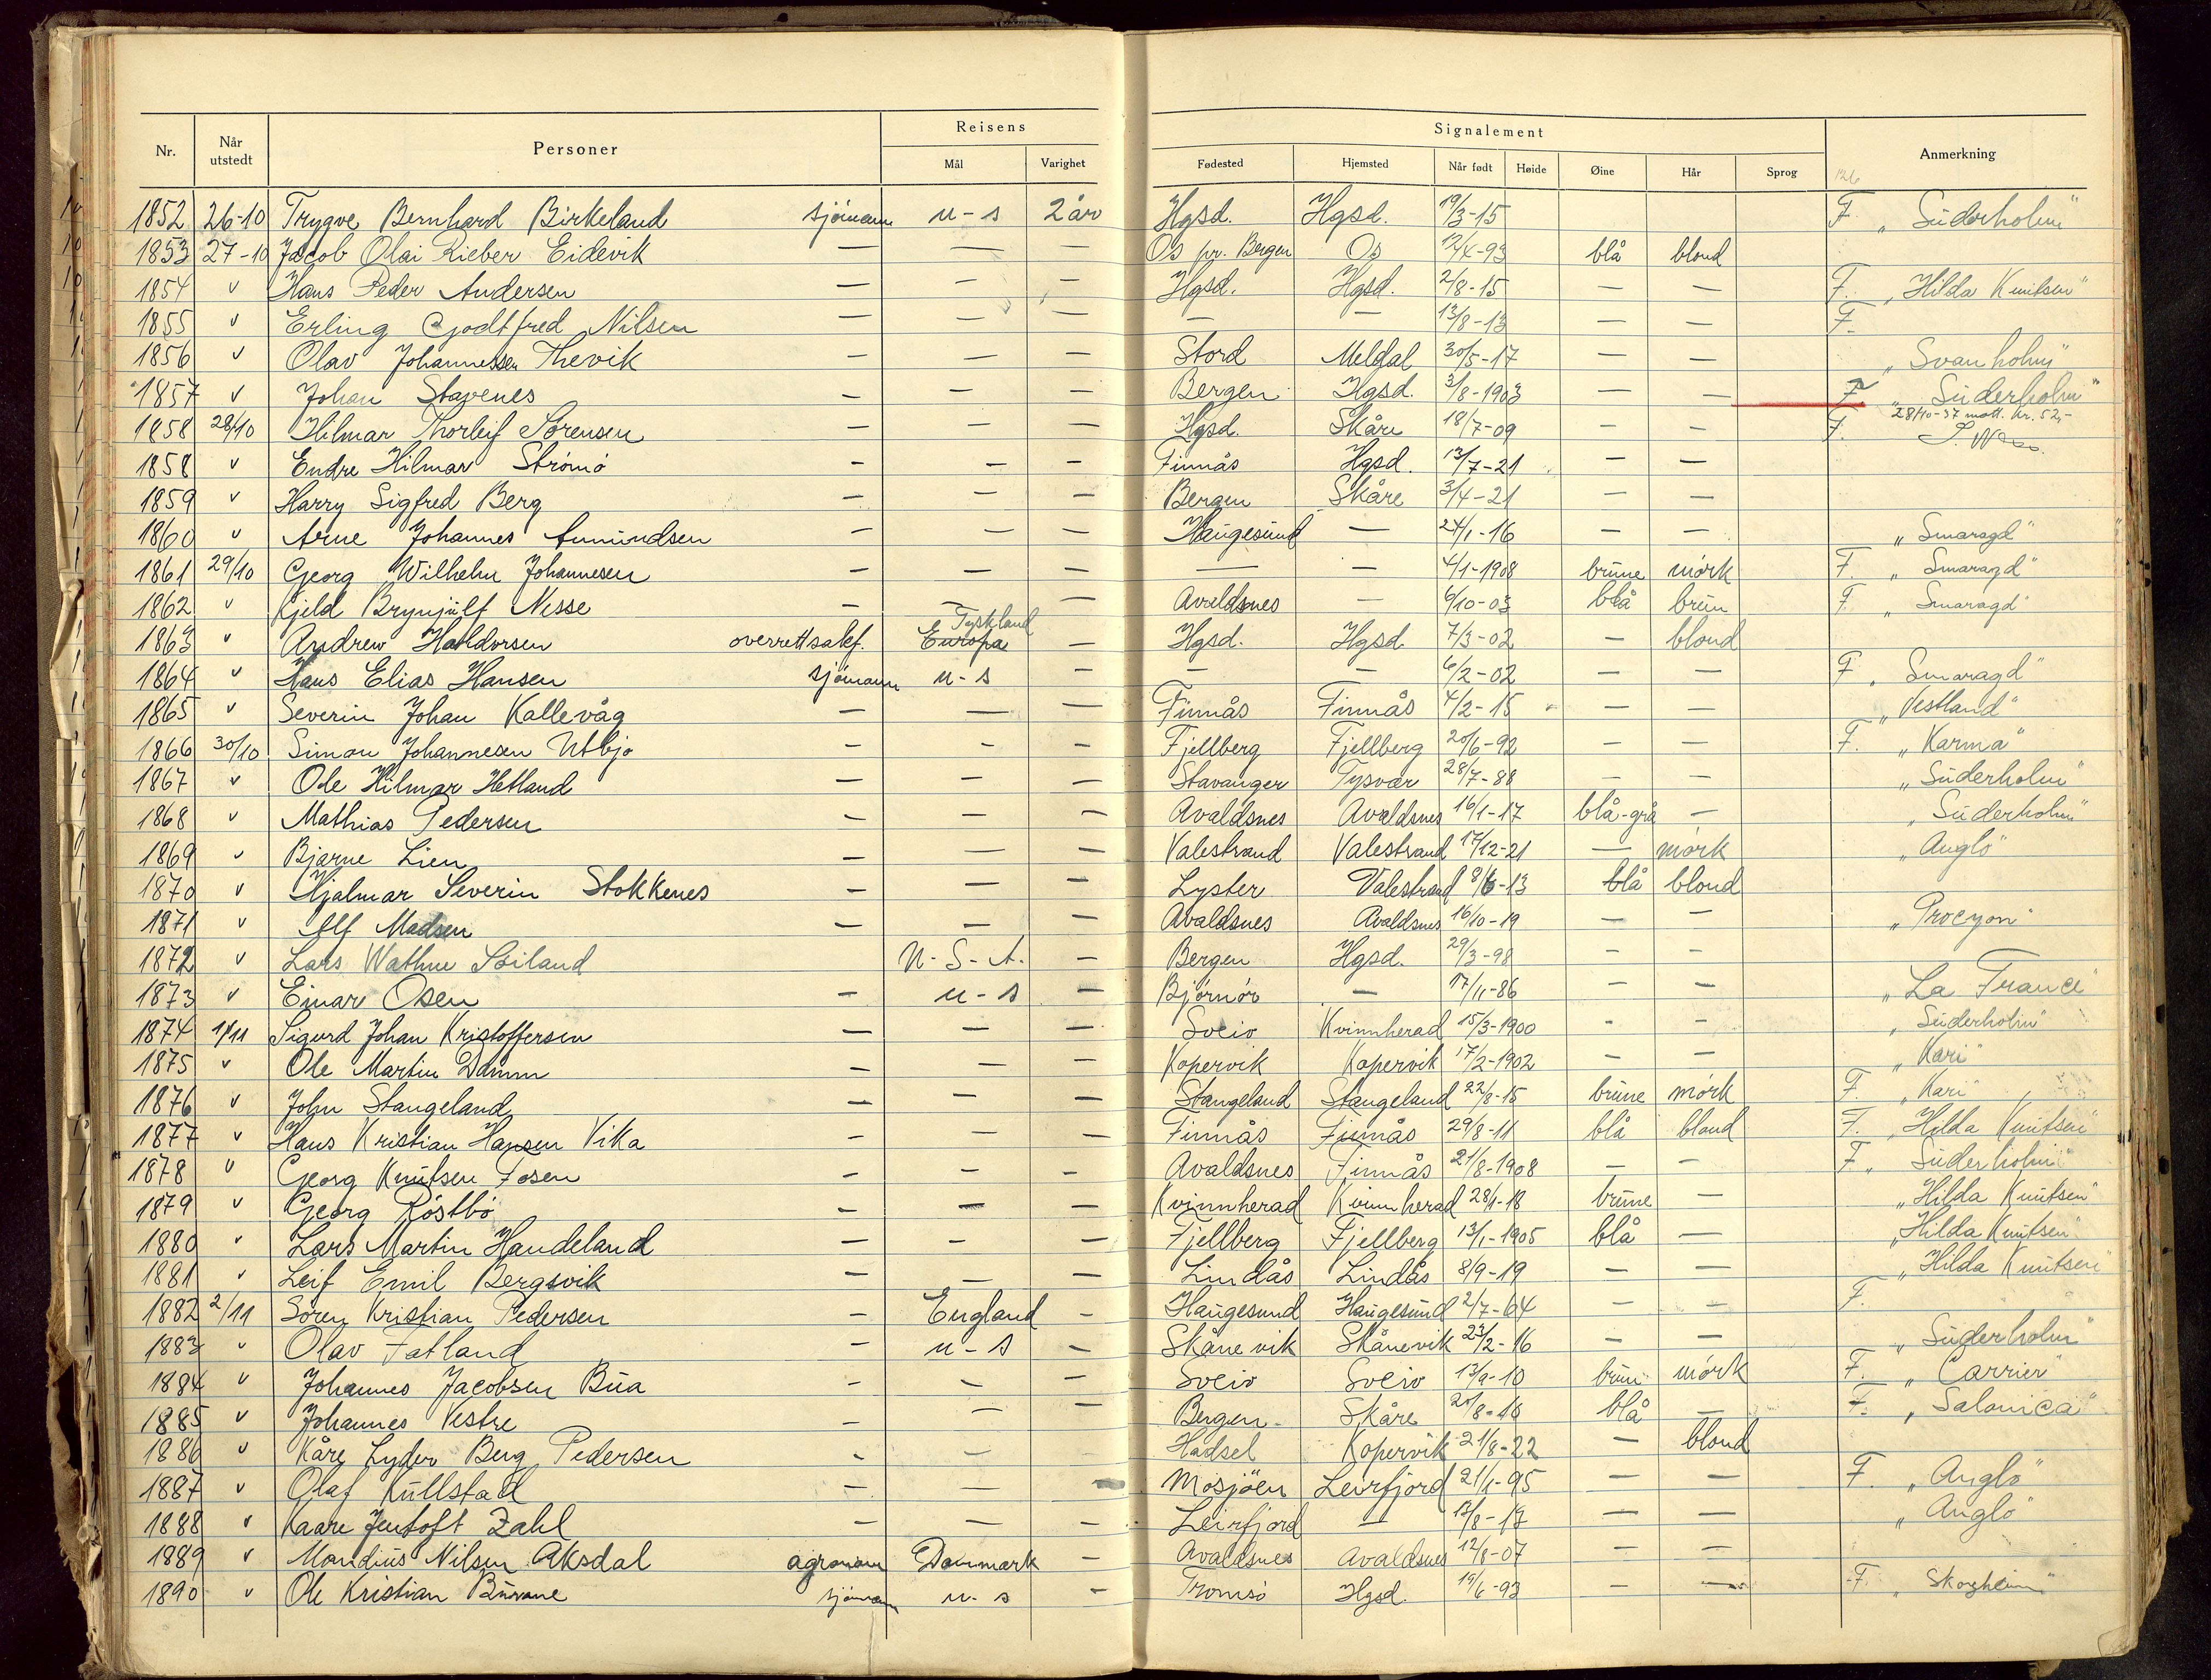 Reisens Signalement
Nr. Når utstedt Personer Mål Varighet Fødested Hjemsted Når født Høide Øine Hår Sprog Anmerkning
126
1852 26-10 Trygve Bernhard Birkeland sjömann u-s 2 år Hgsd. Hgsd. 19/3-15 F. „Süderholm"
1853 27-10 Jacob Olai Rieber Eidevik — — — Os pr. Bergen Os 12/4-93 blå blond
1854 v Hans Peder Andersen — — — Hgsd. Hgsd. 2/8-15 — — F. „Hilda Knutsen"
1855 v Erling Godtfred Nilsen — — — — — 13/8-13 — — F.
1856 v Olav Johannessen Thevik — — — Stord Meldal 30/5-17 — — „Svanholm"
1857 v Johan Stavenes — — — Bergen Hgsd. 3/8-1903 — — F. „Süderholm"
28/10-37 mott. kr. 52,-
1858 28/10 Hilmar Thorleif Sörensen — — — Hgsd. Skåre 18/7-09 — — F.
1858 v Endre Hilmar Strömö — — — Finnås Hgsd. 13/7-21 — —
1859 v Harry Sigfred Berg — — — Bergen Skåre 3/4-21 — —
1860 v Arne Johannes Amundsen — — — Haugesund — 24/1-16 — — „Smaragd"
1861 29/10 Georg Wilhelm Johannesen — — — — — 4/1-1908 brune mörk F. „Smaragd"
1862 v Kjeld Brynjulf Nesse — — — Avaldsnes — 6/10-03 blå brun F. „Smaragd"
Tyskland
1863 v Andrew Haldorsen overrettsakf. Europa — Hgsd. Hgsd. 7/3-02 — blond
1864 v Hans Elias Hansen sjömann u-s — — — 6/2-02 — — F. „Smaragd"
1865 v Severin Johan Kallevåg — — — Finnås Finnås 4/2-15 — — „Vestland"
1866 30/10 Simon Johannesen Utbjo — — — Fjellberg Fjellberg 20/6-92 — — F. „Karma"
1867 v Ole Hilmar Hetland — — — Stavanger Tysvær 28/7-88 — — „Süderholm"
1868 v Mathias Pedersen — — — Avaldsnes Avaldsnes 16/1-17 blå-grå — „Süderholm"
1869 v Bjarne Lien — — — Valestrand Valestrand 17/12-21 — mörk „Anglo"
1870 v Hjalmar Severin Stokkenes — — — Lyster Valestrand 8/6-13 blå blond
1871 v Alf Madsen — — — Avaldsnes Avaldsnes 16/10-19 — — „Procyon"
1872 v Lars Wathne Soiland U-S-A. — Bergen Hgsd. 29/3-98 — —
1873 v Einar Osen — u-s — Björnör — 17/11-86 — — „La France"
1874 1/11 Sigurd Johan Kristoffersen — — — Sveio Kvinnherad 15/3-1900 — — „Süderholm"
1875 v Ole Martin Damm — — — Kopervik Kopervik 17/2-1902 — — „Kari"
1876 v John Stangeland — — — Stangeland Stangeland 22/8-15 brune mörk F. „Kari"
1877 v Hans Kristian Hansen Vika — — — Finnås Finnås 29/8-11 blå blond F. „Hilda Knutsen"
1878 v Georg Knutsen Fosen — — — Avaldsnes Finnås 21/8-1908 — — F. „Süderholm"
1879 v Georg Röstbö — — — Kvinnherad Kvinnherad 28/1-18 brune — „Hilda Knutsen"
1880 v Lars Martin Handeland — — — Fjellberg Fjellberg 13/1-1905 blå — „Hilda Knutsen"
1881 v Leif Emil Bergsvik — — — Lindås Lindås 8/9-19 — — „Hilda Knutsen"
1882 2/11 Sören Kristian Pedersen — England — Haugesund Haugesund 2/7-64 — — F.
1883 v Olav Fatland — u-s — Skånevik Skånevik 23/2-16 — — „Süderholm"
1884 v Johannes Jacobsen Bua — — — Sveio Sveio 13/9-10 brun mörk F. „Carrier"
1885 v Johannes Vestre — — — Bergen Skåre 20/8-16 blå — F. „Salonica"
1886 v Kåre Lyder Berg Pedersen — — — Hadsel Kopervik 21/8-22 — blond
1887 v Olaf Kullstad — — — Mosjöen Leirfjord 21/1-95 — — F. „Anglo"
1888 v Kaare Jentoft Zahl — — — Leirfjord — 13/8-13 — — „Anglo"
1889 v Mandius Nilsen Aksdal agronom Danmark — Avaldsnes Avaldsnes 12/8-07 — —
1890 v Ole Kristian sjömann u-s — Tromsö Hgsd. 19/6-93 — — F. „Skogheim"